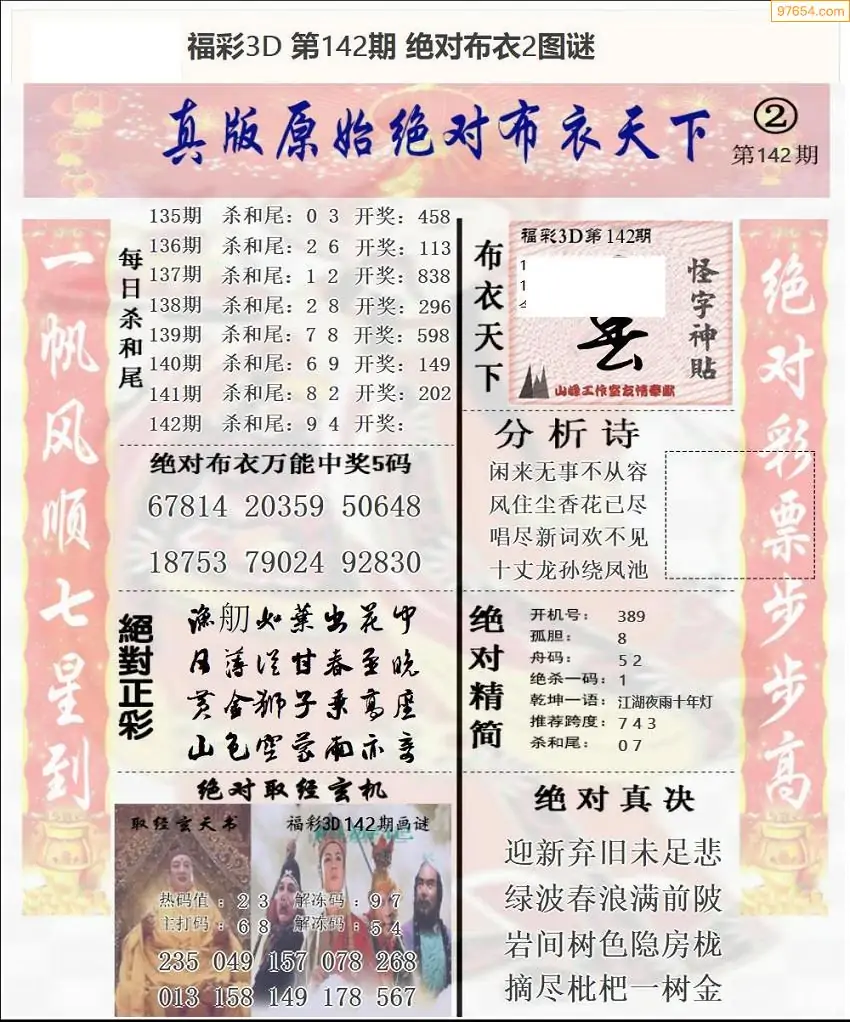 97654.com
福彩3D 第142期 绝对布衣2图谜
真版原始绝对布衣天下
②
第142期
一帆风顺七星到
每日杀和尾
135期 杀和尾：0 3 开奖：458
136期 杀和尾：2 6 开奖：113
137期 杀和尾：1 2 开奖：838
138期 杀和尾：2 8 开奖：296
139期 杀和尾：7 8 开奖：598
140期 杀和尾：6 9 开奖：149
141期 杀和尾：8 2 开奖：202
142期 杀和尾：9 4 开奖：
绝对布衣万能中奖5码
67814 20359 50648
18753 79024 92830
絕對正彩
渔舠如葉出花中
月薄從甘春至晚
黄金狮子乘高座
山色空蒙雨亦奇
绝对取经玄机
取经玄天书
福彩3D142期画谜
热码值：2 3 解冻码：9 7
主打码：6 8 解冻码：5 4
235 049 157 078 268
013 158 149 178 567
布衣天下
福彩3D第142期
怪字神貼
山峰工作室友情奉献
分析诗
闲来无事不从容
风住尘香花已尽
唱尽新词欢不见
十丈龙孙绕凤池
绝对精简
开机号：389
孤胆：8
舟码：5 2
绝杀一码：1
乾坤一语：江湖夜雨十年灯
推荐跨度：7 4 3
杀和尾：0 7
绝对真决
迎新弃旧未足悲
绿波春浪满前陂
岩间树色隐房栊
摘尽枇杷一树金
绝对彩票步步高